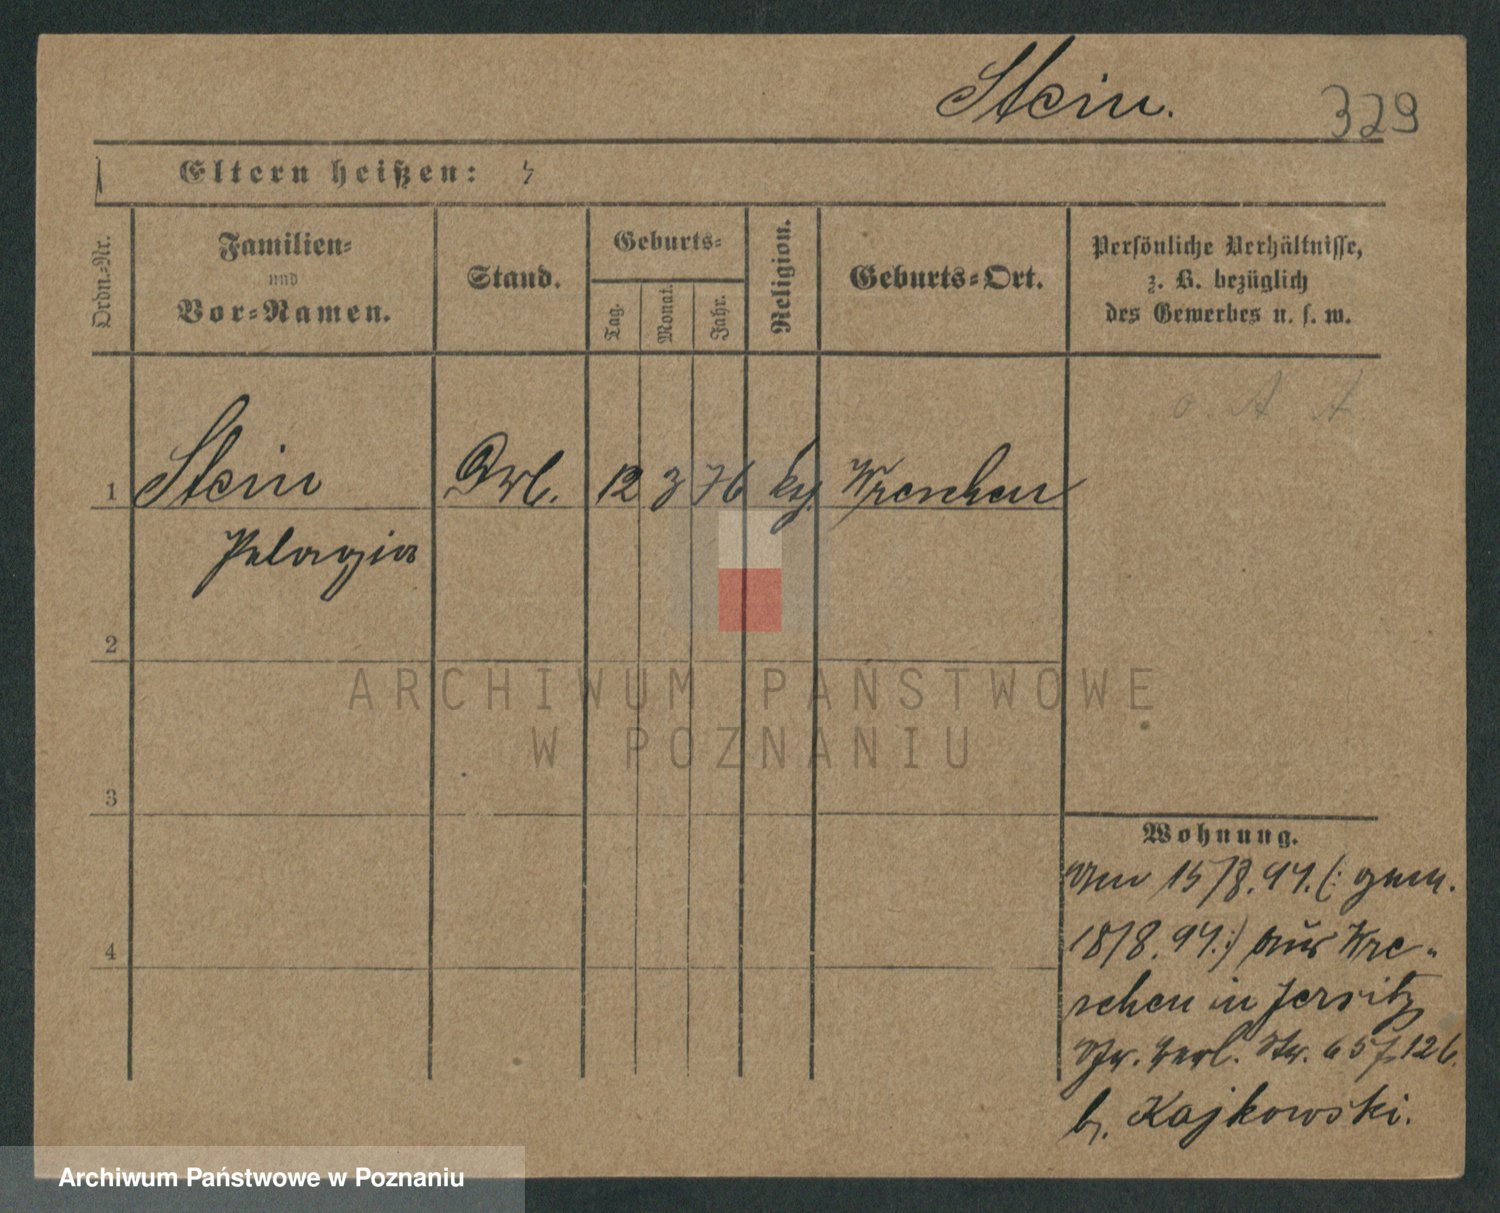 Stein.
329
Eltern heißen:
Ordn.-Nr.
Familien-
und
Vor-Namen.
Stand.
Geburts-
Tag.
Monat.
Jahr.
Religion.
Geburts-Ort.
Persönliche Verhältnisse,
z. B. bezüglich
des Gewerbes u. s. w.
1 Stein 12 3 76 Wreschen
Pelagia
2
3
4
Wohnung.
Am 15/8.94. (: gem.
18/8.94.:) aus Wre-
schen in Jersitz
Gr. Berl. Str. 65/126.
b. Kajkowski.
ARCHIWUM PAŃSTWOWE
W POZNANIU
Archiwum Państwowe w Poznaniu